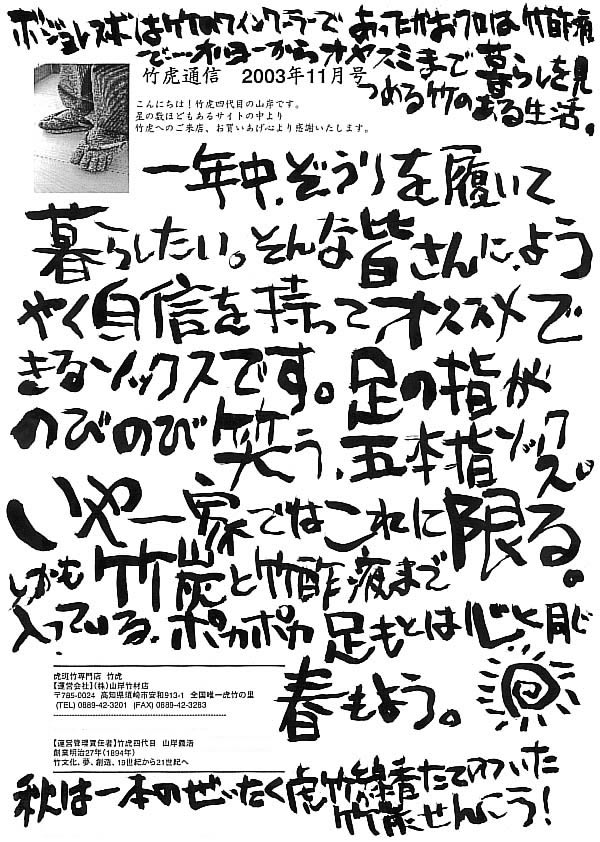 ボジョレヌーボーは竹のワインクーラーで あったかおフロは、竹酢液
で…オハヨーからオヤスミまで 暮らしを見
つめる竹のある生活。
竹虎通信 2003年11月号
こんにちは！竹虎四代目の山岸です。
星の数ほどもあるサイトの中より
竹虎へのご来店、お買いあげ心より感謝いたします。
一年中、ぞうりを履いて
暮らしたい。そんな皆さんに、よう
やく自信を持ってオススメで
きるソックスです。足の指が
のびのび笑う、五本指ソック
ス。
いや一家ではこれに限る。
しかも竹炭と竹酢液まで
入っている。ポカポカ足もとは心と同じ
春もよう。
虎斑竹専門店 竹虎
【運営会社】（株）山岸竹材店
〒785-0024 高知県須崎市安和913-1 全国唯一虎竹の里
(TEL) 0889-42-3201 (FAX) 0889-42-3283
【運営管理責任者】竹虎四代目 山岸義浩
創業明治27年（1894年）
竹文化、夢、創造、19世紀から21世紀へ
秋は一本のぜいたく虎竹線香たて
竹炭せんこう！